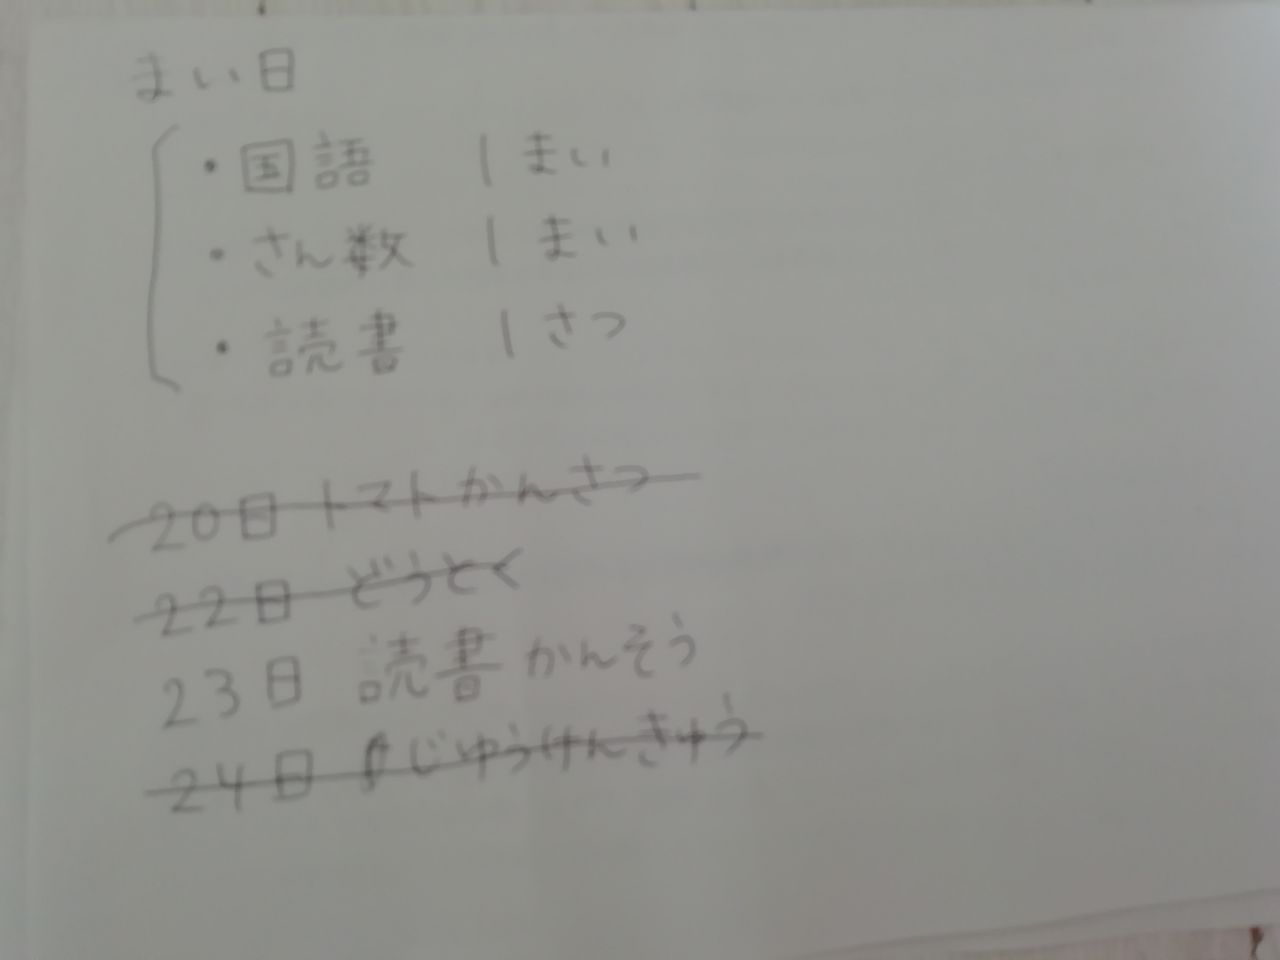 まい日
・国語 1まい
・さん数 1まい
・読書 1さつ
20日 トマトかんさつ
22日 どうとく
23日 読書かんそう
24日 じゆうけんきゅう